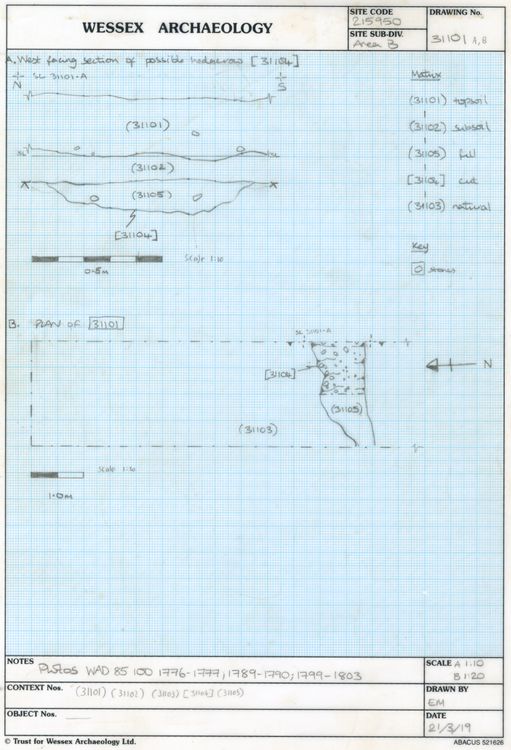 WESSEX ARCHAEOLOGY
SITE CODE
215950
SITE SUB-DIV.
Area B
DRAWING No.
31101 A,B
A. West facing section of possible hedgerow [31104]
SL 31101-A
N
S
(31101)
SL
(31102)
(31105)
[31104]
0.5m
Scale 1:10
Matrix
(31101) topsoil
(31102) subsoil
(31105) fill
[31104] cut
(31103) natural
Key
stones
B. PLAN OF 31101
SL 31101-A
[31104]
(31105)
(31103)
N
1.0m
NOTES
Photos WAD 85 100 1776-1777, 1789-1790, 1799-1803
SCALE A 1:10
B 1:20
CONTEXT Nos. (31101) (31102) (31103) [31104] (31105)
DRAWN BY
EM
OBJECT Nos.
DATE
21/3/19
© Trust for Wessex Archaeology Ltd.
ABACUS 521626